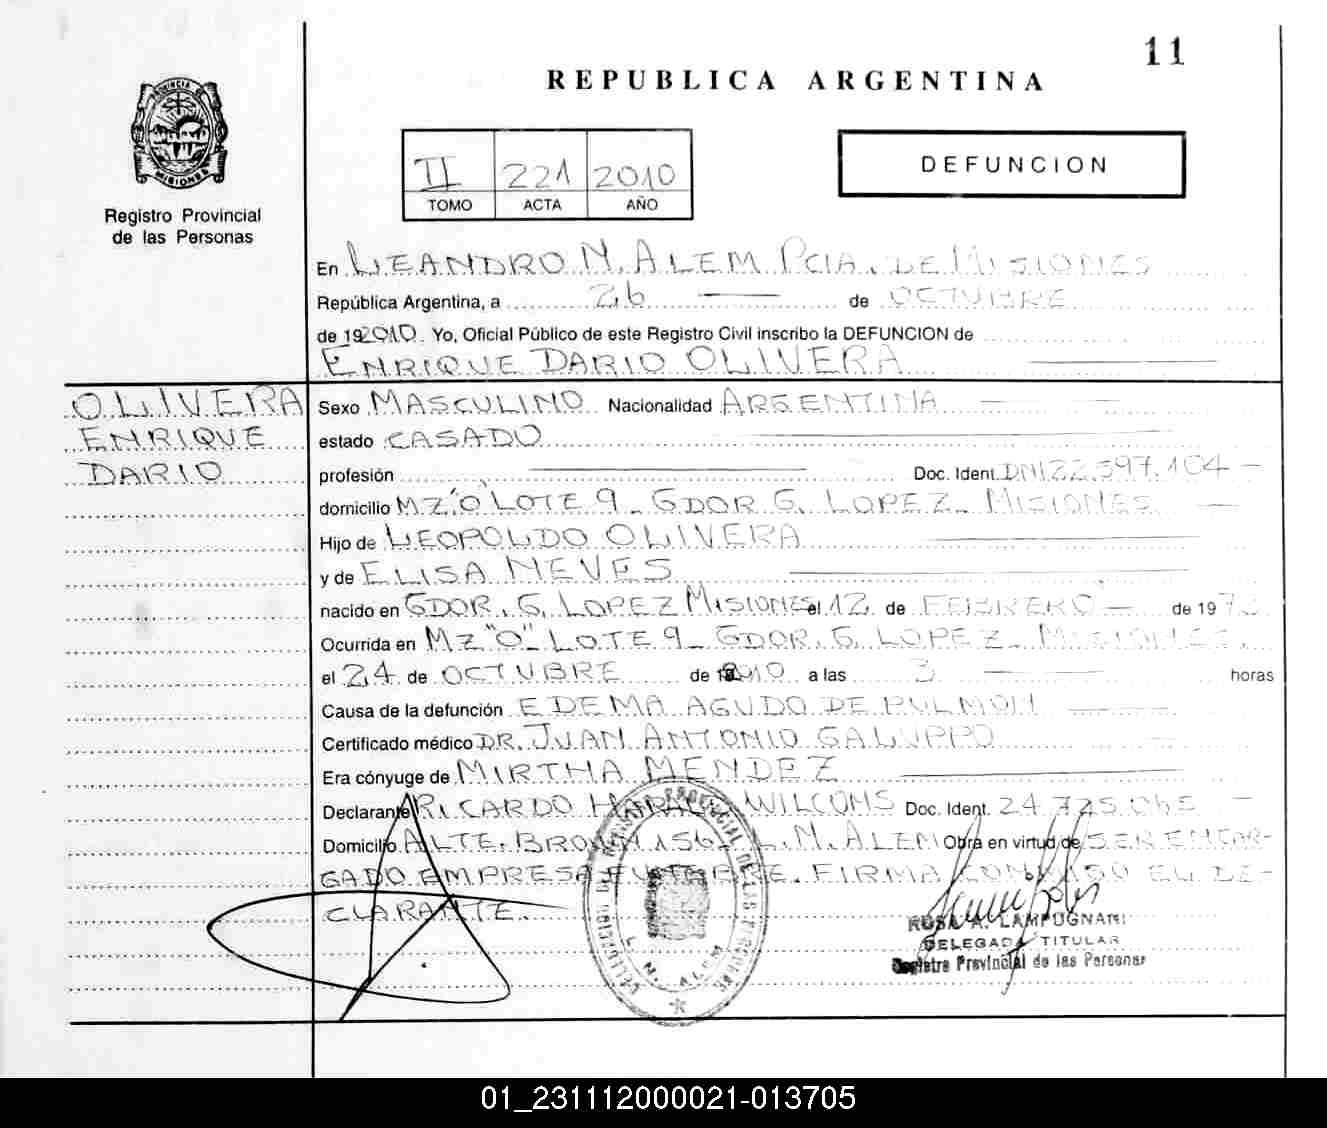 11
REPUBLICA ARGENTINA
PROVINCIA DE
MISIONES
Registro Provincial
de las Personas
II 221 2010
TOMO ACTA AÑO
DEFUNCION
En LEANDRO N. ALEM PCIA. DE MISIONES
República Argentina, a 26 de OCTUBRE
de 192010. Yo, Oficial Público de este Registro Civil inscribo la DEFUNCION de
ENRIQUE DARIO OLIVERA
OLIVERA
ENRIQUE
DARIO
Sexo MASCULINO Nacionalidad ARGENTINA
estado CASADO
profesión Doc. Ident. DNI 22.597.104
domicilio MZ "O" LOTE 9 - GDOR G. LOPEZ - MISIONES
Hijo de LEOPOLDO OLIVERA
y de ELISA NEVES
nacido en GDOR. G. LOPEZ MISIONES el 12 de FEBRERO de 197
Ocurrida en MZ "O" LOTE 9 - GDOR. G. LOPEZ - MISIONES.
el 24 de OCTUBRE de 2010 a las 3 horas
Causa de la defunción EDEMA AGUDO DE PULMON
Certificado médico DR. JUAN ANTONIO GALUPPO
Era cónyuge de MIRTHA MENDEZ
Declarante RICARDO WILCOMS Doc. Ident. 24.725.065
Domicilio ALTE. BROWN L. N. ALEM Obra en virtud de SER ENCAR-
GADO EMPRESA FUNEBRE. FIRMA CONMIGO EL DE-
CLARANTE.
PROVINCIAL DE LAS PERSONAS
L. N. ALEM
ROSA A. LAMPUGNANI
DELEGADA TITULAR
Registro Provincial de las Personas
01_231112000021-013705